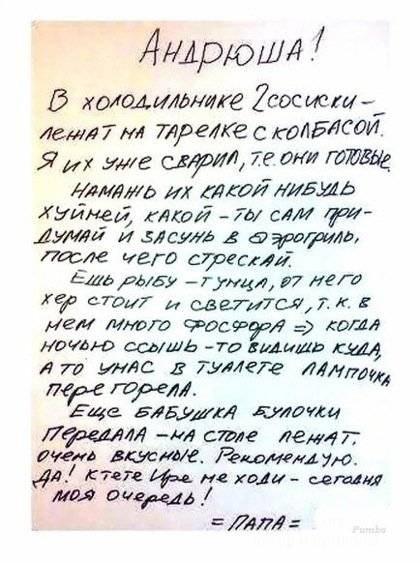 Андрюша!
В холодильнике 2 сосиски –
лежат на тарелке с колбасой.
Я их уже сварил, т.е. они готовые.
Намажь их какой нибудь
хуйней, какой – ты сам при-
думай и засунь в аэрогриль,
после чего стрескай.
Ешь рыбу – тунца, от него
хер стоит и светится, т.к. в
нем много фосфора => когда
ночью ссышь – то видишь куда,
а то у нас в туалете лампочка
перегорела.
Еще бабушка булочки
передала – на столе лежат.
очень вкусные. Рекомендую.
Да! К тете Ире не ходи – сегодня
моя очередь!
= ПАПА =
Pumba